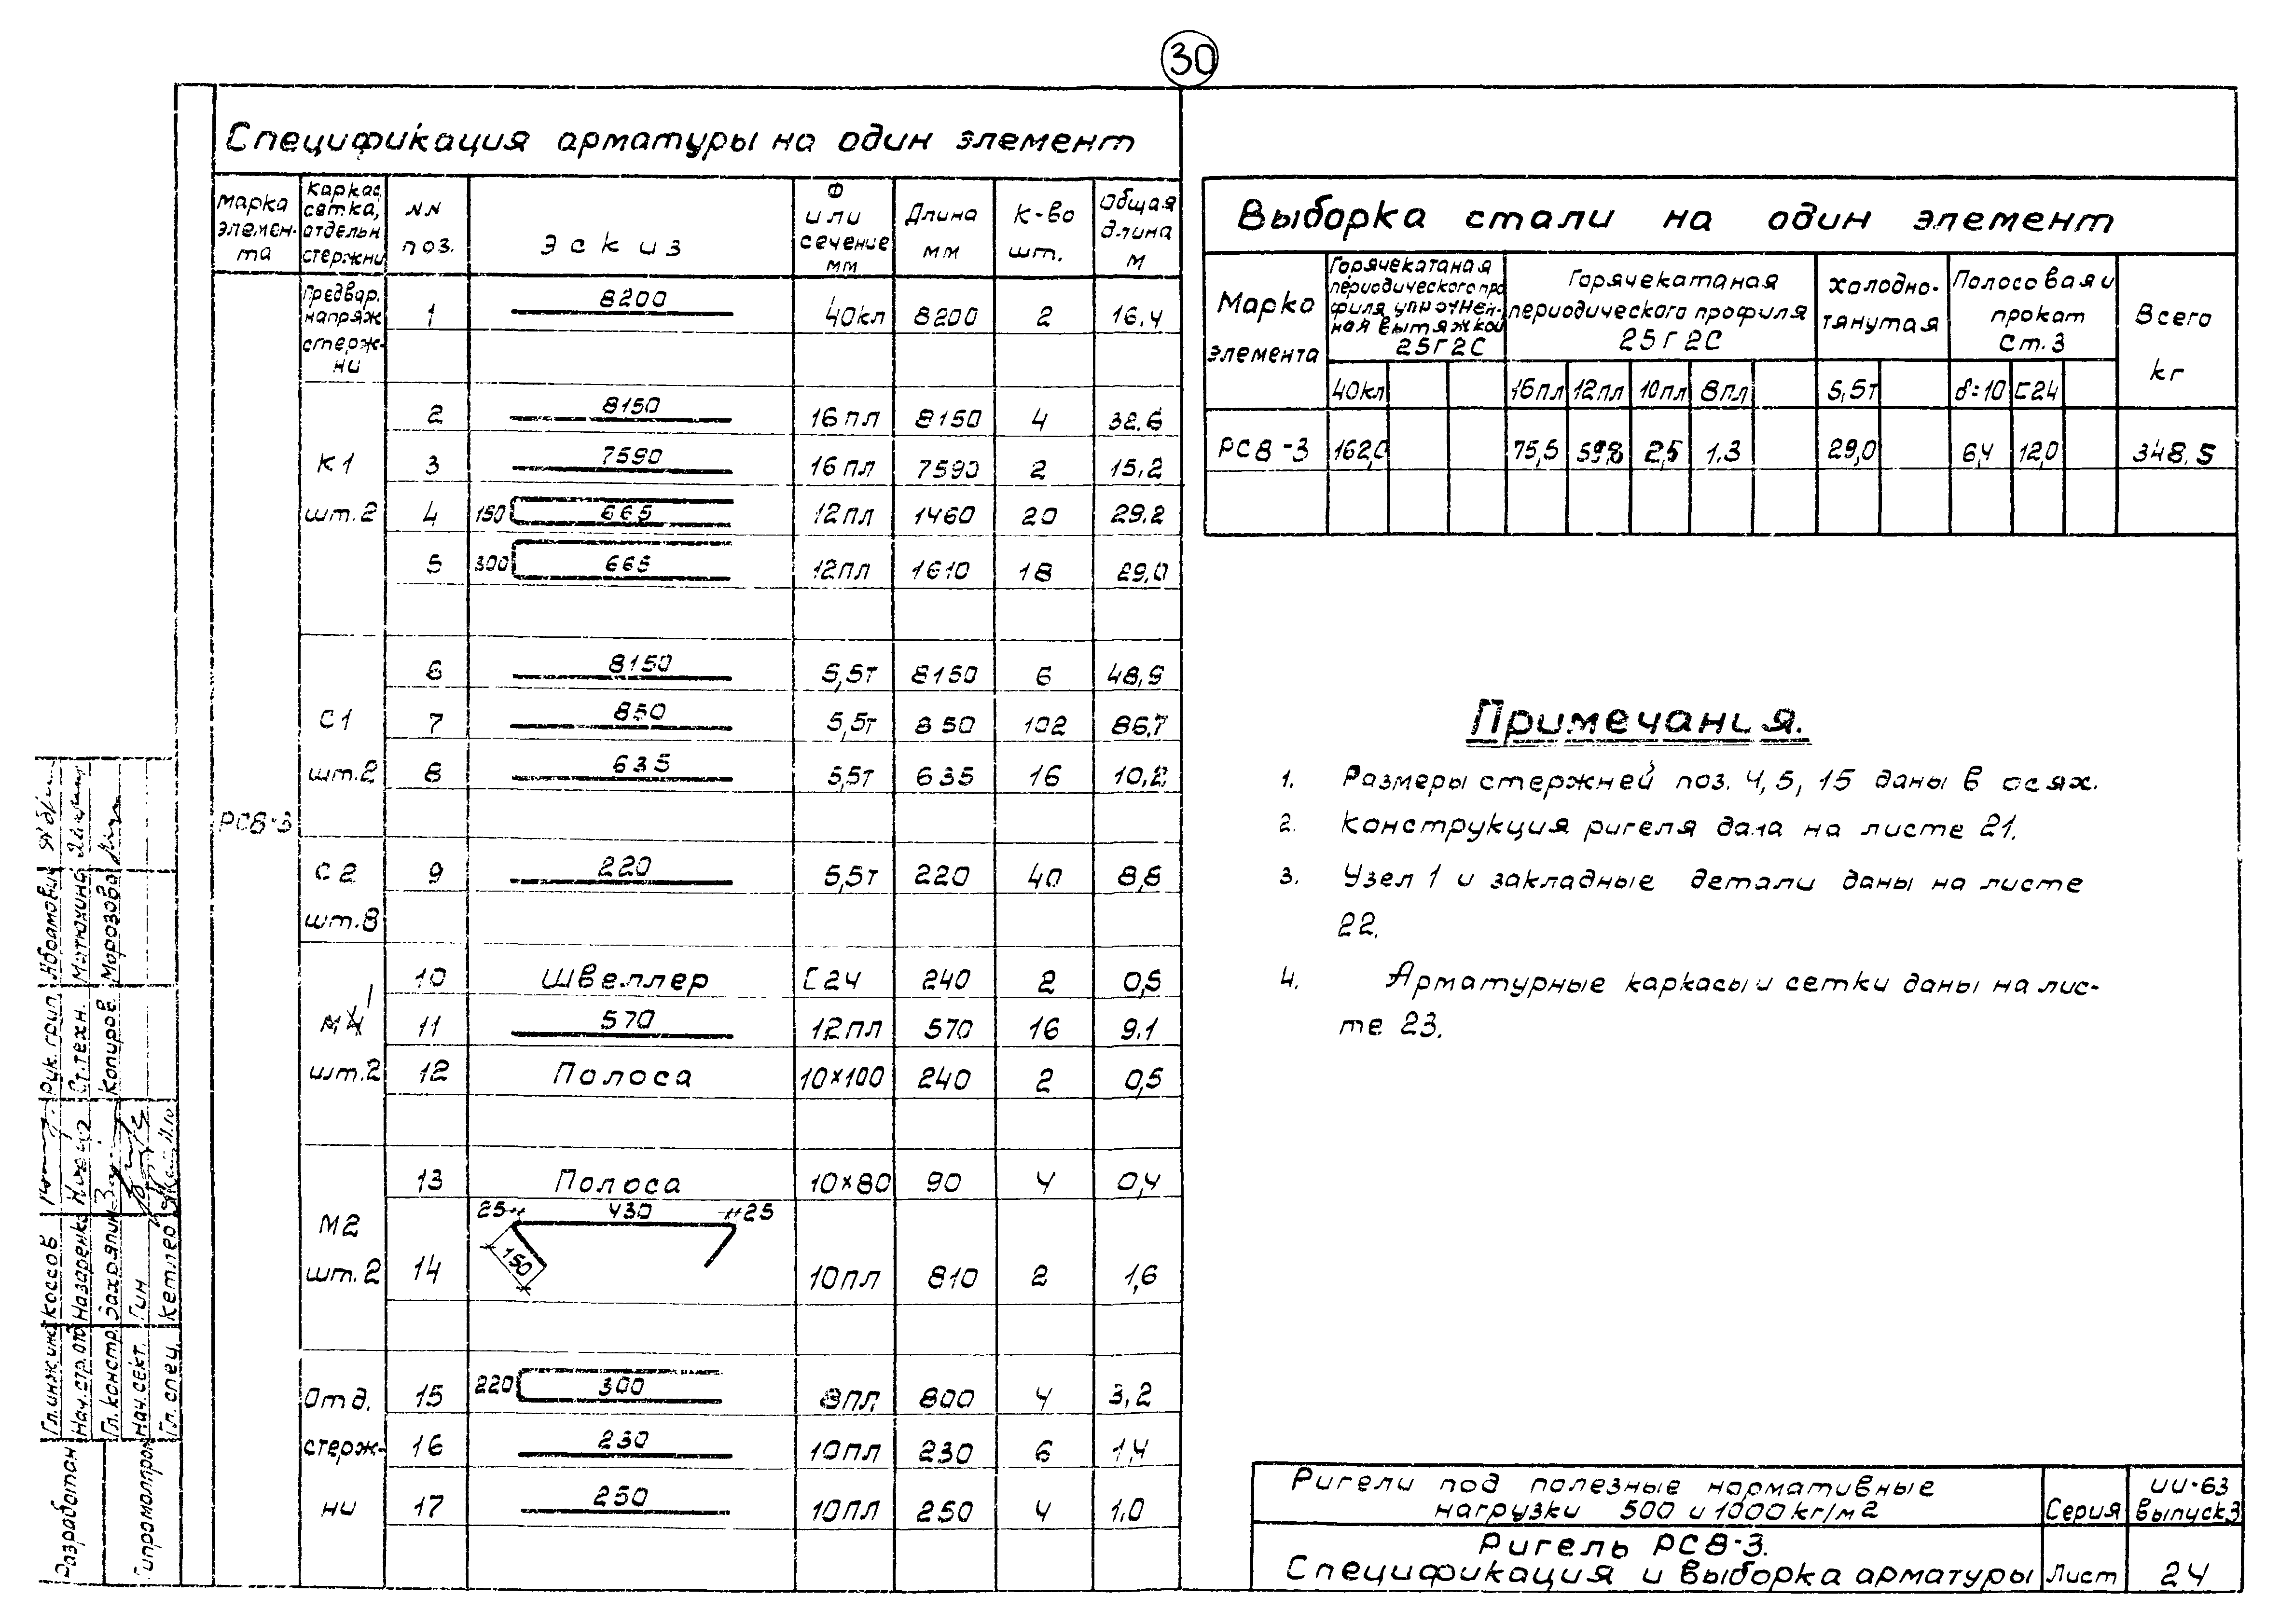 30
Спецификация арматуры на один элемент
Марка элемен-та | Каркас, сетка, отдельн стержни | NN поз. | Эскиз | Ф или сечение мм | Длина мм | К-во шт. | Общая длина м
РС8-3
Предвар. напряж стерж-ни | 1 | 8200 | 40кл | 8200 | 2 | 16.4
К1 шт.2
2 | 8150 | 16пл | 8150 | 4 | 32.6
3 | 7590 | 16пл | 7590 | 2 | 15.2
4 | 150 665 | 12пл | 1460 | 20 | 29.2
5 | 300 665 | 12пл | 1610 | 18 | 29,0
С1 шт.2
6 | 8150 | 5,5т | 8150 | 6 | 48,9
7 | 850 | 5,5т | 850 | 102 | 86,7
8 | 635 | 5,5т | 635 | 16 | 10,2
С2 шт.8
9 | 220 | 5,5т | 220 | 40 | 8,8
М1 шт.2
10 | Швеллер | С24 | 240 | 2 | 0,5
11 | 570 | 12пл | 570 | 16 | 9.1
12 | Полоса | 10×100 | 240 | 2 | 0,5
М2 шт.2
13 | Полоса | 10×80 | 90 | 4 | 0,4
14 | 25 430 25 150 | 10пл | 810 | 2 | 1,6
Отд. стерж-ни
15 | 220 300 | 8пл | 800 | 4 | 3,2
16 | 230 | 10пл | 230 | 6 | 1,4
17 | 250 | 10пл | 250 | 4 | 1.0
Выборка стали на один элемент
Марка элемента | Горячекатаная периодического профиля упрочнен-ная вытяжкой 25Г2С | Горячекатаная периодического профиля 25Г2С | Холодно-тянутая | Полосовая и прокат Ст.3 | Всего кг
40кл | 16пл | 12пл | 10пл | 8пл | 5,5т | δ=10 | С24
РС8-3 | 162,0 | 75,5 | 59,8 | 2,5 | 1.3 | 29,0 | 6,4 | 12,0 | 348.5
Примечания.
1. Размеры стержней поз. 4, 5, 15 даны в осях.
2. Конструкция ригеля дана на листе 21.
3. Узел 1 и закладные детали даны на листе
22.
4. Арматурные каркасы и сетки даны на лис-
те 23.
Ригели под полезные нормативные
нагрузки 500 и 1000 кг/м2
Серия
ИИ-63
Выпуск 3
Ригель РС8-3.
Спецификация и выборка арматуры
Лист
24
Рук. груп. Абрамович
Ст. техн. Матюхина
Копиров. Морозова
Гл. инж. ин. Коссов
Нач. стр. отд. Назаренко
Гл. констр.
Нач. сект. Гин
Гл. спец. Кетлер
Разработан